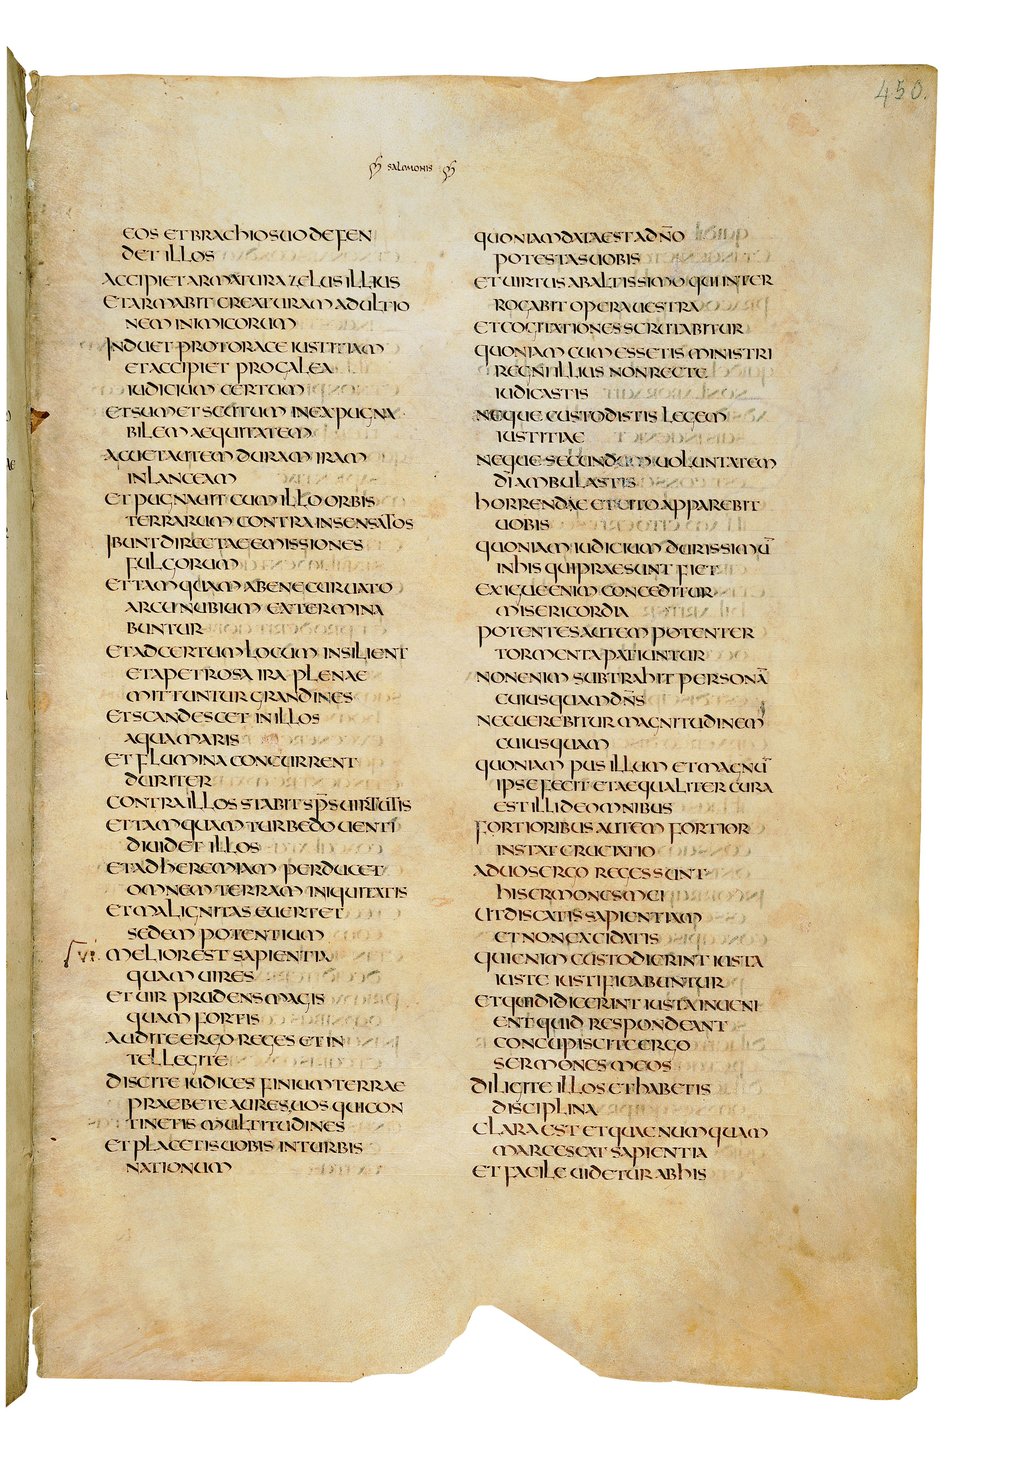 450.
SALOMONIS
EOS ET BRACHIO SUO DEFEN
DET ILLOS
ACCIPIET ARMATURA ZELUS ILLIUS
ET ARMABIT CREATURAM AD ULTIO
NEM INIMICORUM
INDUET PRO TORACE IUSTITIAM
ET ACCIPIET PRO GALEA
IUDICIUM CERTUM
ET SUMET SCUTUM INEXPUGNA
BILEM AEQUITATEM
ACUET AUTEM DURAM IRAM
IN LANCEAM
ET PUGNAVIT CUM ILLO ORBIS
TERRARUM CONTRA INSENSATOS
IBUNT DIRECTAE EMISSIONES
FULGORUM
ET TAMQUAM A BENE CURUATO
ARCU NUBIUM EXTERMINA
BUNTUR
ET AD CERTUM LOCUM INSILIENT
ET A PETROSA IRA PLENAE
MITTUNTUR GRANDINES
ET SCANDESCET IN ILLOS
AQUA MARIS
ET FLUMINA CONCURRENT
DURITER
CONTRA ILLOS STABIT SP̅S UIRTUTIS
ET TAMQUAM TURBEDO UENTI
DIUIDET ILLOS
ET AD HEREMIAM PERDUCET
OMNEM TERRAM INIQUITATIS
ET MALIGNITAS EUERTET
SEDEM POTENTIUM
VI. MELIOR EST SAPIENTIA
QUAM UIRES
ET UIR PRUDENS MAGIS
QUAM FORTIS
AUDITE ERGO REGES ET IN
TELLEGITE
DISCITE IUDICES FINIUM TERRAE
PRAEBETE AURES UOS QUI CON
TINETIS MULTITUDINES
ET PLACETIS UOBIS IN TURBIS
NATIONUM
QUONIAM DATA EST A DN̅O
POTESTAS UOBIS
ET UIRTUS AB ALTISSIMO QUI INTER
ROGABIT OPERA UESTRA
ET COGITATIONES SCRUTABITUR
QUONIAM CUM ESSETIS MINISTRI
REGNI ILLIUS NON RECTE
IUDICASTIS
NEQUE CUSTODISTIS LEGEM
IUSTITIAE
NEQUE SECUNDUM UOLUNTATEM
DI̅ AMBULASTIS
HORRENDAE ET CITO APPAREBIT
UOBIS
QUONIAM IUDICIUM DURISSIMU̅
IN HIS QUI PRAESUNT FIET
EXIGUE ENIM CONCEDITUR
MISERICORDIA
POTENTES AUTEM POTENTER
TORMENTA PATIUNTUR
NON ENIM SUBTRAHIT PERSONA̅
CUIUSQUAM DN̅S
NEC UEREBITUR MAGNITUDINEM
CUIUSQUAM
QUONIAM PUSILLUM ET MAGNU̅
IPSE FECIT ET AEQUALITER CURA
EST ILLI DE OMNIBUS
FORTIORIBUS AUTEM FORTIOR
INSTAT CRUCIATIO
AD UOS ERGO REGES SUNT
HI SERMONES MEI
UT DISCATIS SAPIENTIAM
ET NON EXCIDATIS
QUI ENIM CUSTODIERINT IUSTA
IUSTE IUSTIFICABUNTUR
ET QUI DIDICERINT IUSTA INUENI
ENT QUID RESPONDEANT
CONCUPISCITE ERGO
SERMONES MEOS
DILIGITE ILLOS ET HABETIS
DISCIPLINA
CLARA EST ET QUAE NUMQUAM
MARCESCAT SAPIENTIA
ET FACILE UIDETUR AB HIS